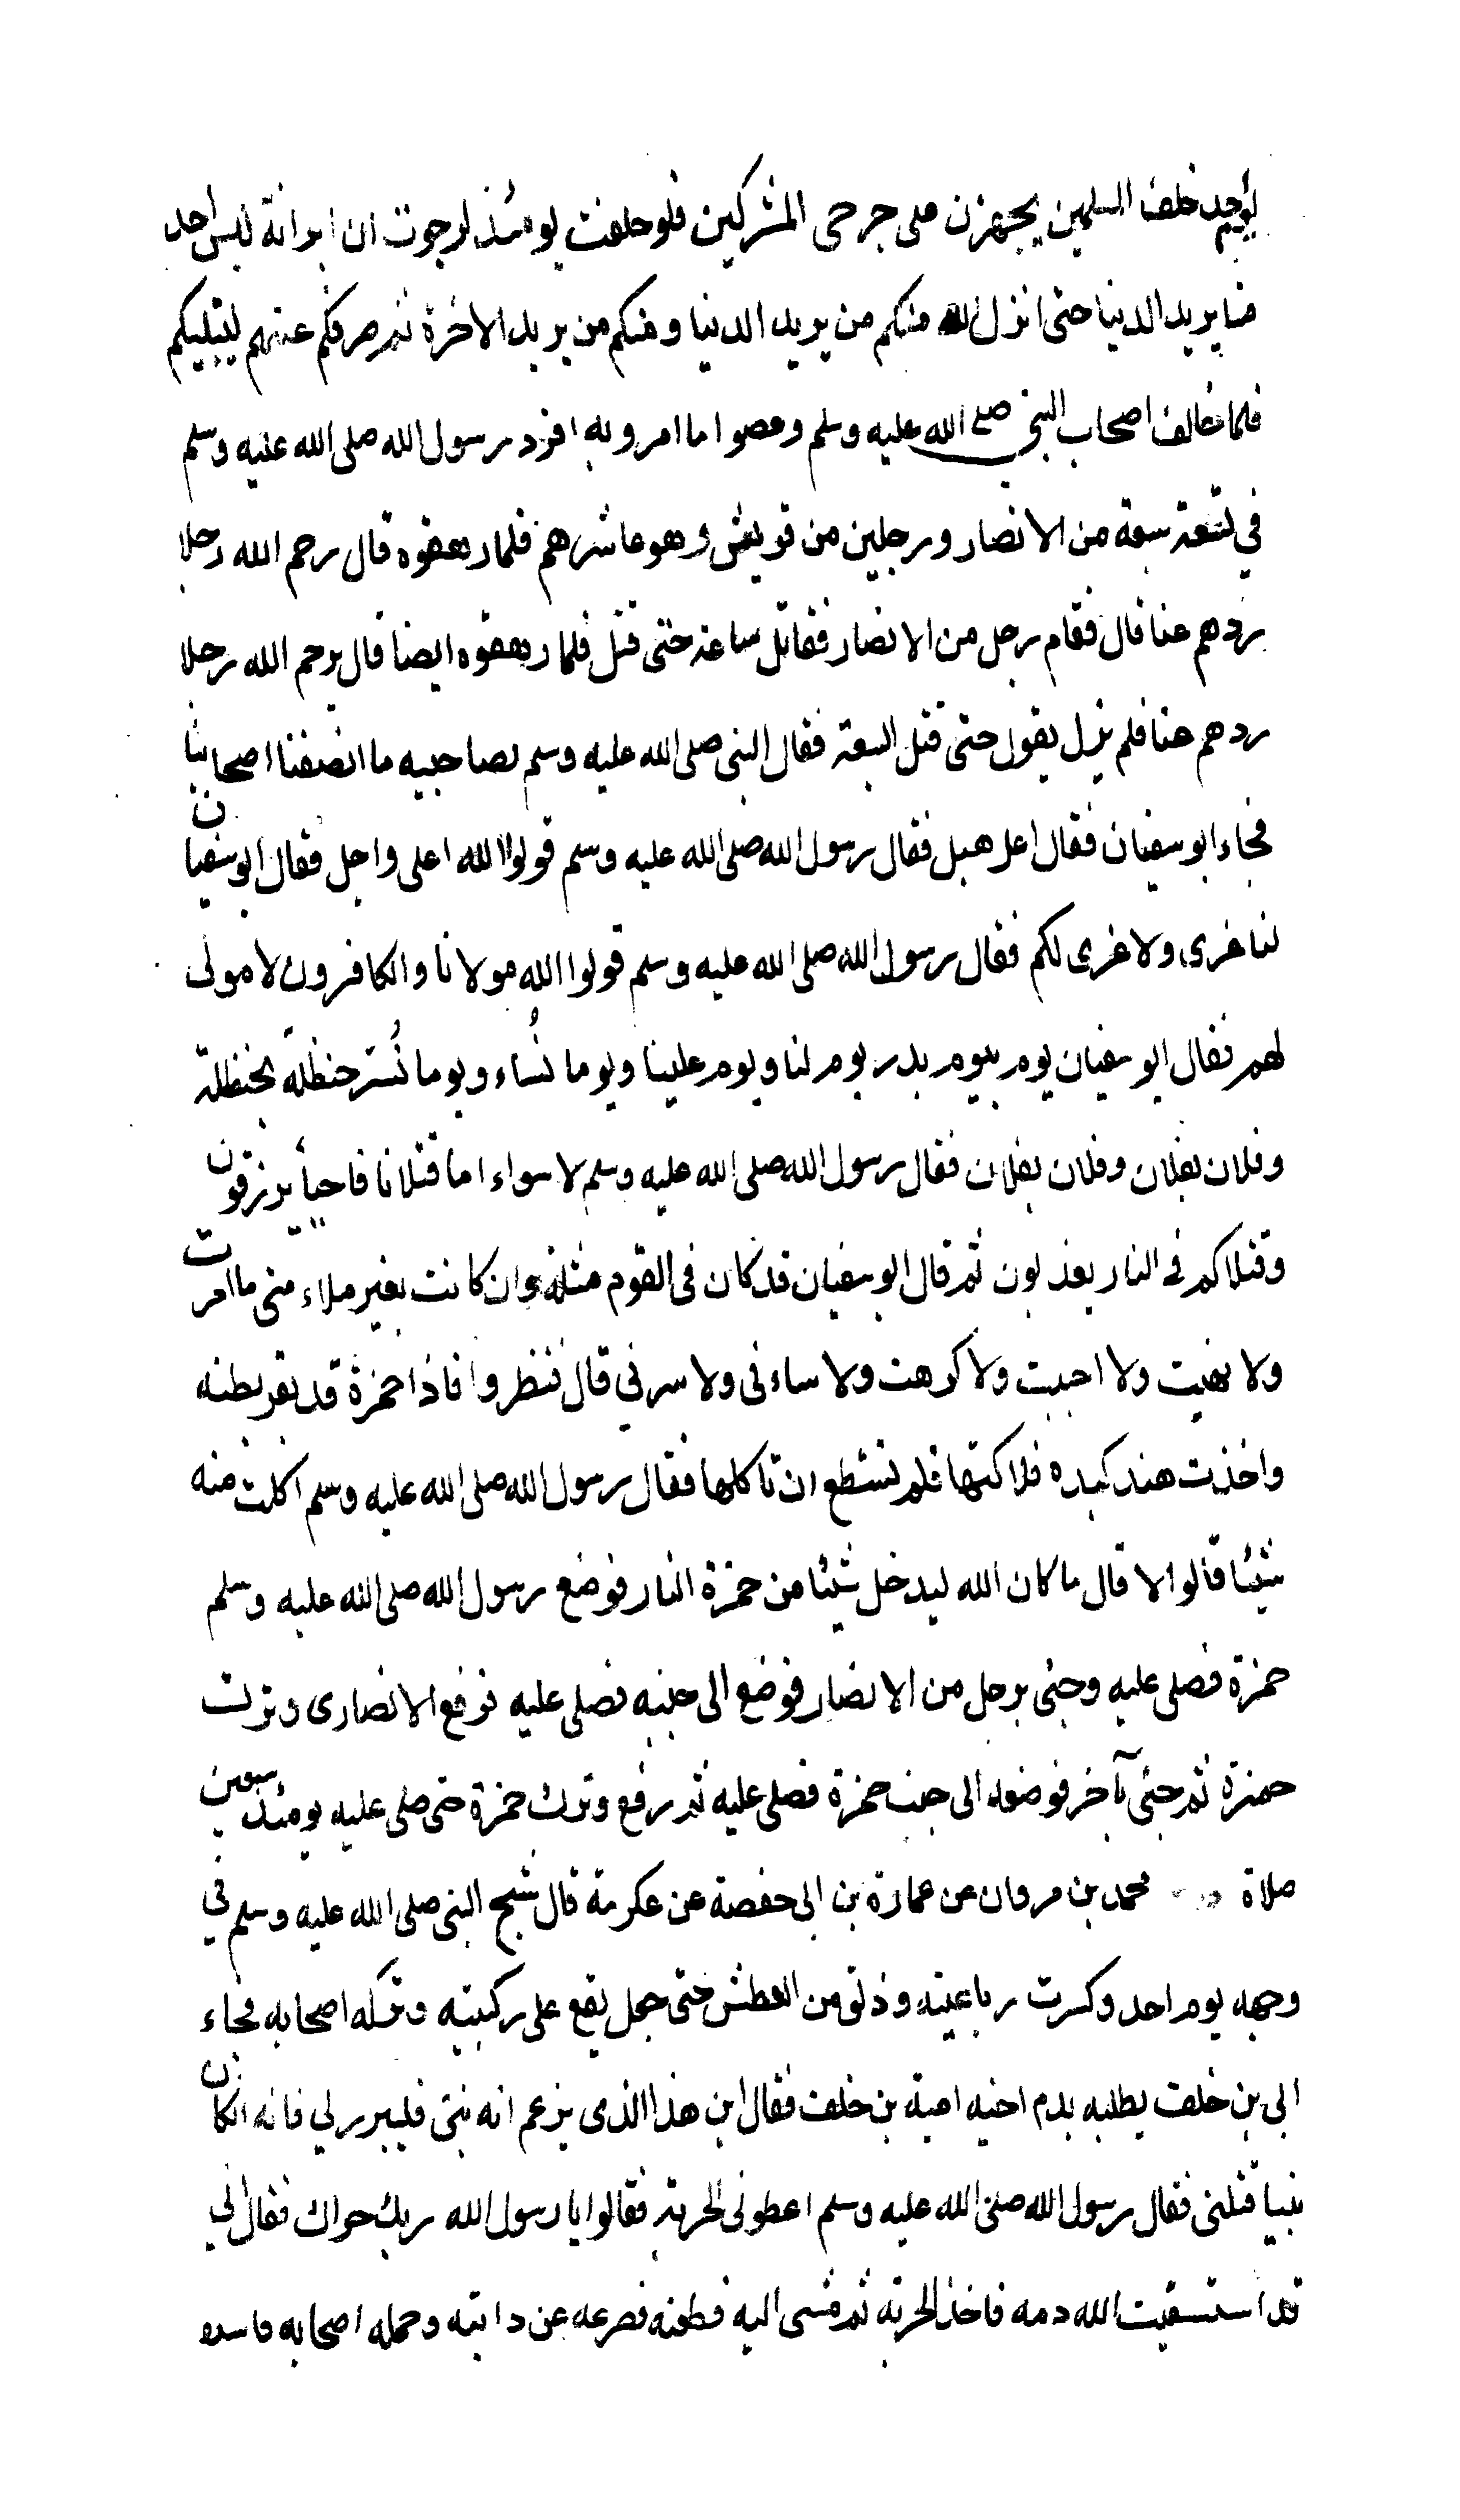 يوم احد خلف المسلمين يجهزن على جرحى المشركين فلو حلفت يومئذ لرجوت ان ابر انه ليس احد
منا يريد الدنيا حتى انزل الله منكم من يريد الدنيا ومنكم من يريد الاخرة ثم صرفكم عنهم ليبتليكم
فلما خالف اصحاب النبي صلى الله عليه وسلم وعصوا ما امروا به افرد رسول الله صلى الله عليه وسلم
في تسعة سبعة من الانصار ورجلين من قريش وهو عاشرهم فلما رهقوه قال رحم الله رجلا
ردهم عنا قال فقام رجل من الانصار فقاتل ساعة حتى قتل فلما رهقوه ايضا قال يرحم الله رجلا
ردهم عنا فلم يزل يقول حتى قتل السبعة فقال النبي صلى الله عليه وسلم لصاحبيه ما انصفنا اصحابنا
فجاء ابو سفيان فقال اعل هبل فقال رسول الله صلى الله عليه وسلم قولوا الله اعلى واجل فقال ابو سفيان
لنا عزى ولا عزى لكم فقال رسول الله صلى الله عليه وسلم قولوا الله مولانا والكافرون لا مولى
لهم فقال ابو سفيان يوم بيوم بدر يوم لنا ويوم علينا ويوما نُساء ويوما نُسر حنظلة بحنظلة
وفلان بفلان وفلان بفلان فقال رسول الله صلى الله عليه وسلم لا سواء اما قتلانا فاحياً يرزقون
وقتلاكم في النار يعذبون ثم قال ابو سفيان قد كان في القوم مثلة وان كانت لغير ملاء مني ما امرت
ولا نهيت ولا احببت ولا كرهت ولا ساءني ولا سرني قال فنظروا فاذا حمزة قد بقر بطنه
واخذت هند كبده فلاكتها فلم تستطع ان تاكلها فقال رسول الله صلى الله عليه وسلم اكلت منه
شيئا قالوا لا قال ما كان الله ليدخل شيئا من حمزة النار فوضع رسول الله صلى الله عليه وسلم
حمزة فصلى عليه وجئ برجل من الانصار فوضع الى جنبه فصلى عليه فرفع الانصارى وترك
حمزة ثم جئ بآخر فوضعه الى جنب حمزة فصلى عليه ثم رفع وترك حمزة حتى صلى عليه يومئذ سبعين
صلاة محمد بن مروان عن عمارة بن ابى حفصة عن عكرمة قال شج النبي صلى الله عليه وسلم في
وجهه يوم احد وكسرت رباعيته وذلق من العطش حتى جعل يقع على ركبتيه وتركه اصحابه فجاء
ابى بن خلف يطلبه بدم اخيه امية بن خلف فقال اين هذا الذى يزعم انه نبى فليبرز لي فانه ان كان
نبيا قتلنى فقال رسول الله صلى الله عليه وسلم اعطونى الحربة فقالوا يا رسول الله وبك حراك فقال اني
قد استسقيت الله دمه فاخذ الحربة ثم مشى اليه فطعنه فصرعه عن دابته وحمله اصحابه